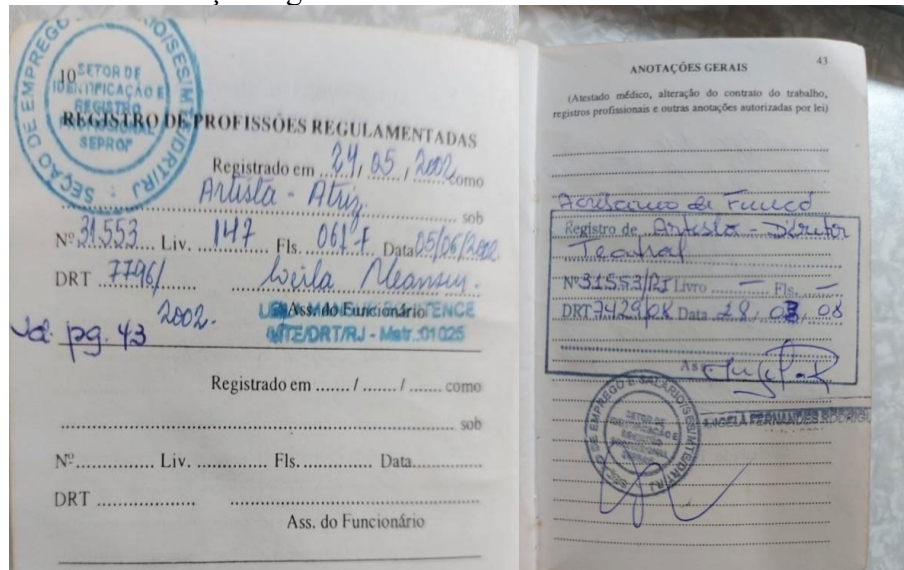 10
SEÇÃO DE EMPREGO
SETOR DE
IDENTIFICAÇÃO E
REGISTRO
PROFISSIONAL
SEPROP
REGISTRO DE PROFISSÕES REGULAMENTADAS
Registrado em 24, 05 / 2002 como
Artista - Atriz sob
Nº 31.553 Liv. 147 Fls. 061 Data 05/06/2002
DRT 7796/
2002.
Ass. do Funcionário
MTE/DRT/RJ - Matr.:01025
Vd. pg. 43
Registrado em ....... / ....... / ....... como
sob
Nº.............. Liv. ............. Fls.............. Data.............
DRT ...................
Ass. do Funcionário
43
ANOTAÇÕES GERAIS
(Atestado médico, alteração do contrato do trabalho,
registros profissionais e outras anotações autorizadas por lei)
Acréscimo de Funçã
Registro de Artista - Diretor
Teatral
Nº 31553/RJ Livro — Fls. —
DRT 7429/08 Data 28, 03, 08
As
SETOR DE
IDENTIFICAÇÃO E
REGISTRO
PROFISSIONAL
ANGELA FERNANDES RODRIG